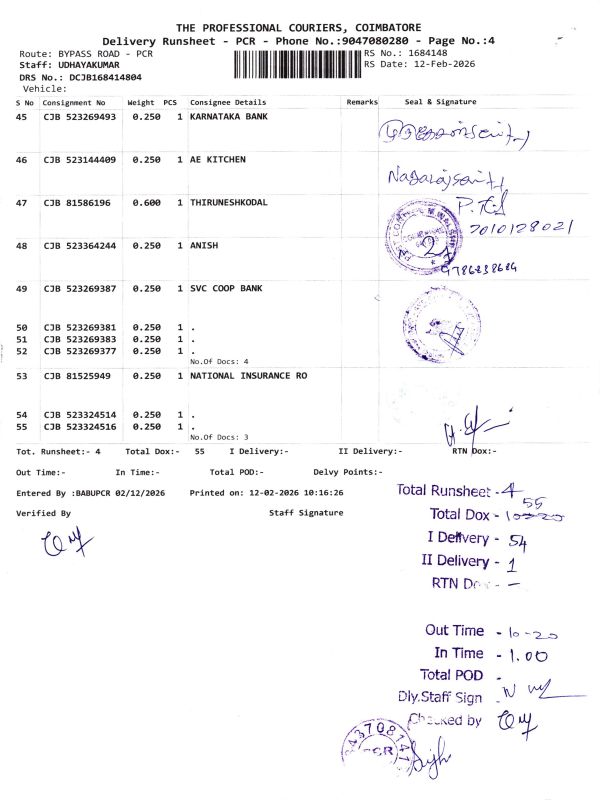 THE PROFESSIONAL COURIERS, COIMBATORE
Delivery Runsheet - PCR - Phone No.:9047080280 - Page No.:4
Route: BYPASS ROAD - PCR
RS No.: 1684148
Staff: UDHAYAKUMAR
RS Date: 12-Feb-2026
DRS No.: DCJB168414804
Vehicle:
S No Consignment No Weight PCS Consignee Details Remarks Seal & Signature
45 CJB 523269493 0.250 1 KARNATAKA BANK
46 CJB 523144409 0.250 1 AE KITCHEN
47 CJB 81586196 0.600 1 THIRUNESHKODAL
7010128021
48 CJB 523364244 0.250 1 ANISH
9786238684
49 CJB 523269387 0.250 1 SVC COOP BANK
50 CJB 523269381 0.250 1 .
51 CJB 523269383 0.250 1 .
52 CJB 523269377 0.250 1 .
No.Of Docs: 4
53 CJB 81525949 0.250 1 NATIONAL INSURANCE RO
54 CJB 523324514 0.250 1 .
55 CJB 523324516 0.250 1 .
No.Of Docs: 3
Tot. Runsheet:- 4 Total Dox:- 55 I Delivery:- II Delivery:- RTN Dox:-
Out Time:- In Time:- Total POD:- Delvy Points:-
Entered By :BABUPCR 02/12/2026 Printed on: 12-02-2026 10:16:26
Verified By Staff Signature
Total Runsheet - 4
55
Total Dox - 10-20
I Delivery - 54
II Delivery - 1
RTN Dox - -
Out Time - 10-20
In Time - 1.00
Total POD -
Dly.Staff Sign
Checked by
PCR